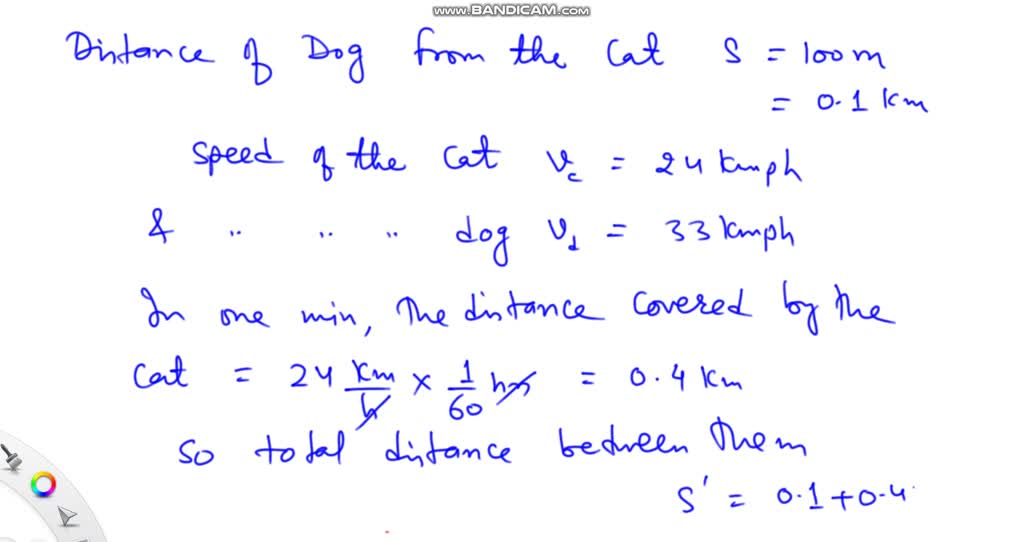 www.BANDICAM.com
Distance of Dog from the Cat S = 100m
= 0.1 Km
Speed of the Cat Vc = 24 Kmph
& " " " dog Vd = 33 Kmph
In one min, The distance covered by the
Cat = 24 Km/h × 1/60 hr = 0.4 Km
So total distance between Them
S' = 0.1+0.4